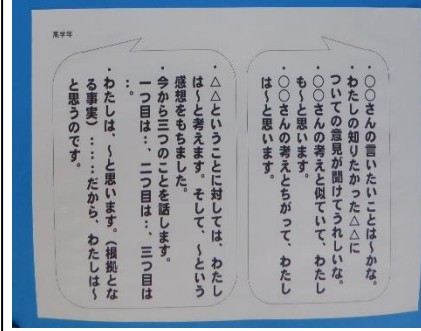 高学年
・〇〇さんの言いたいことは～かな。
・わたしの知りたかった△△に
ついての意見が聞けてうれしいな。
・〇〇さんの考えと似ていて、わたし
も～と思います。
・〇〇さんの考えとちがって、わたし
は～と思います。
・△△ということに対しては、わたし
は～と考えます。そして、～という
感想をもちました。
・今から三つのことを話します。
一つ目は…、二つ目は…、三つ目は
…。
・わたしは、～と思います。（根拠とな
る事実）……だから、わたしは～
と思うのです。